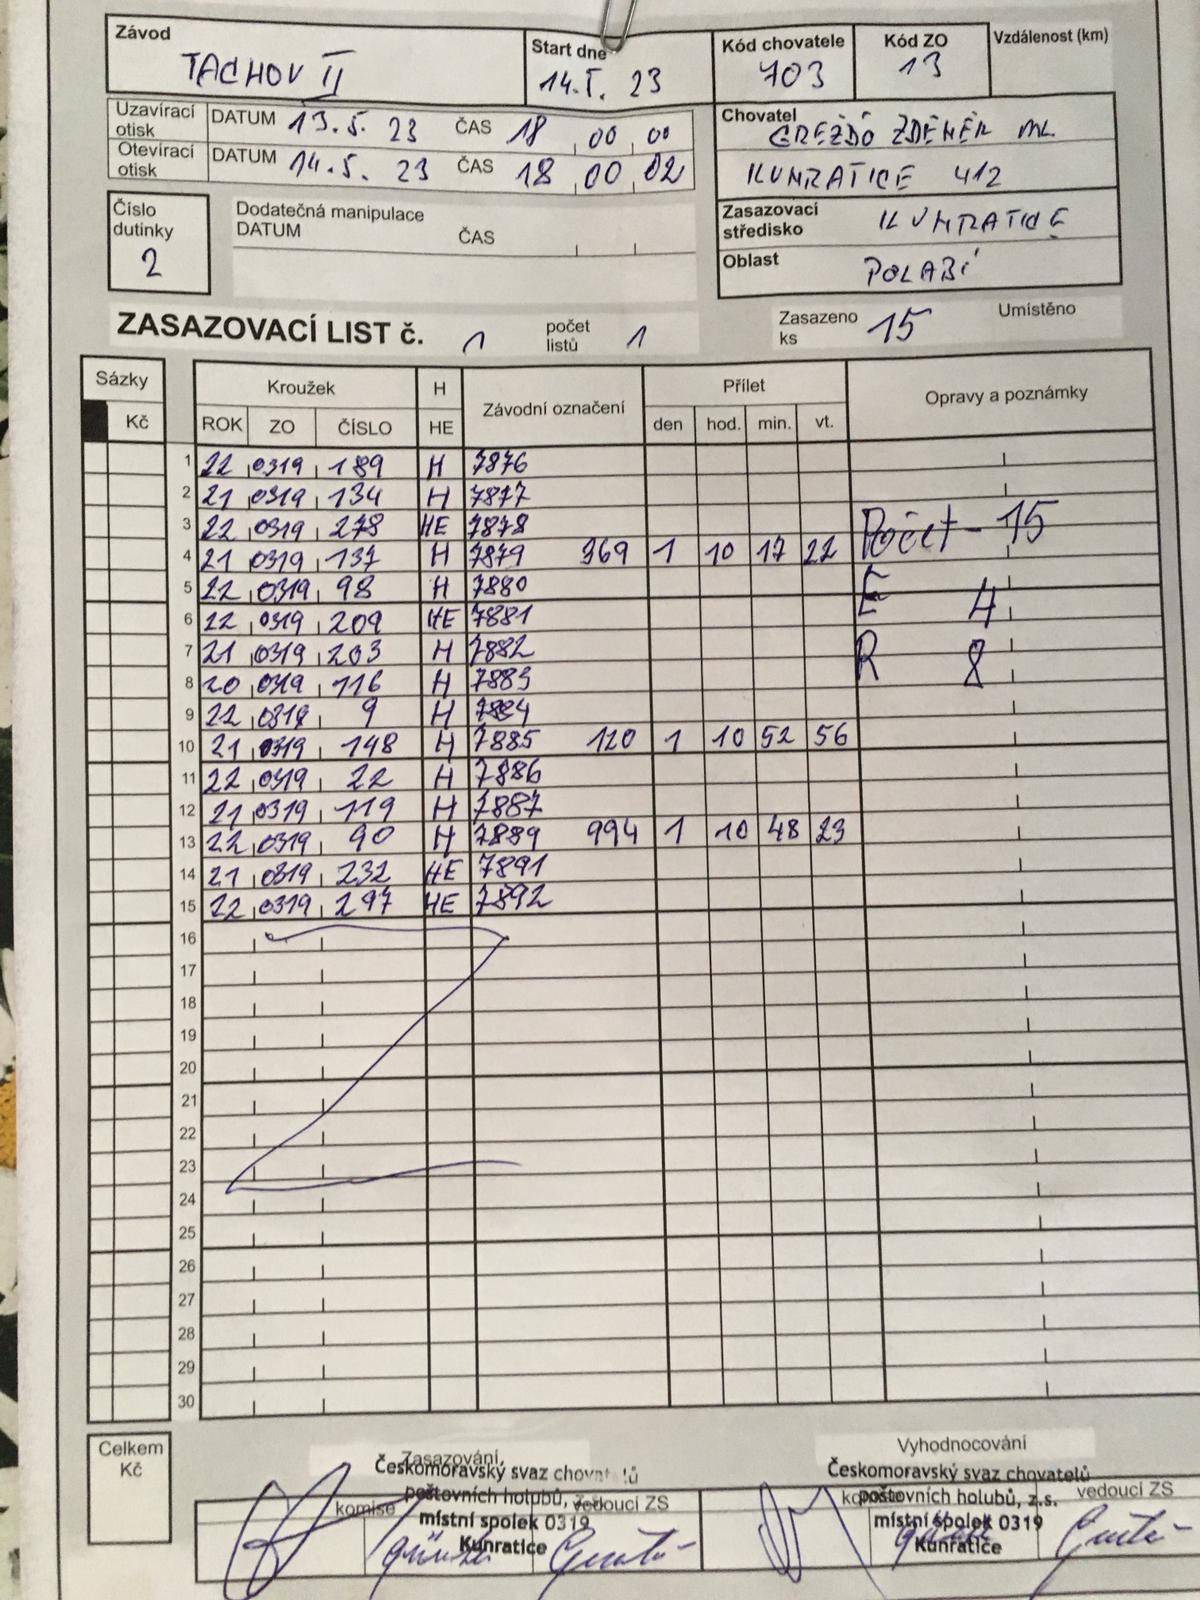 Závod
TACHOV II
Start dne
14.5. 23
Kód chovatele
703
Kód ZO
13
Vzdálenost (km)
Uzavírací otisk DATUM 13.5. 23 ČAS 18 00 00
Otevírací otisk DATUM 14.5. 23 ČAS 18 00 02
Chovatel
GREŽĎO ZDENĚK ML
KUNRATICE 412
Zasazovací středisko KUNRATICE
Oblast POLABÍ
Číslo dutinky
2
Dodatečná manipulace
DATUM ČAS
ZASAZOVACÍ LIST č. 1 počet listů 1
Zasazeno ks 15 Umístěno
Sázky Kroužek H Závodní označení Přílet Opravy a poznámky
Kč ROK ZO ČÍSLO HE den hod. min. vt.
1 22 0319 189 H 7876
2 21 0319 134 H 7877
3 22 0319 278 HE 7878
Počet - 15
4 21 0319 137 H 7879 369 1 10 17 22
5 22 0319 98 H 7880
E 4
6 22 0319 209 HE 7881
7 21 0319 203 H 7882
R 8
8 20 0319 116 H 7883
9 22 0319 9 H 7884
10 21 0319 148 H 7885 120 1 10 52 56
11 22 0319 22 H 7886
12 21 0319 119 H 7887
13 22 0319 90 H 7889 994 1 10 48 23
14 21 0319 232 HE 7891
15 22 0319 297 HE 7892
16
17
18
19
20
21
22
23
24
25
26
27
28
29
30
Celkem Kč
Zasazování
Českomoravský svaz chovatelů
poštovních holubů, z.s.
komise vedoucí ZS
místní spolek 0319
Kunratice
Vyhodnocování
Českomoravský svaz chovatelů
poštovních holubů, z.s.
komise vedoucí ZS
místní spolek 0319
Kunratice